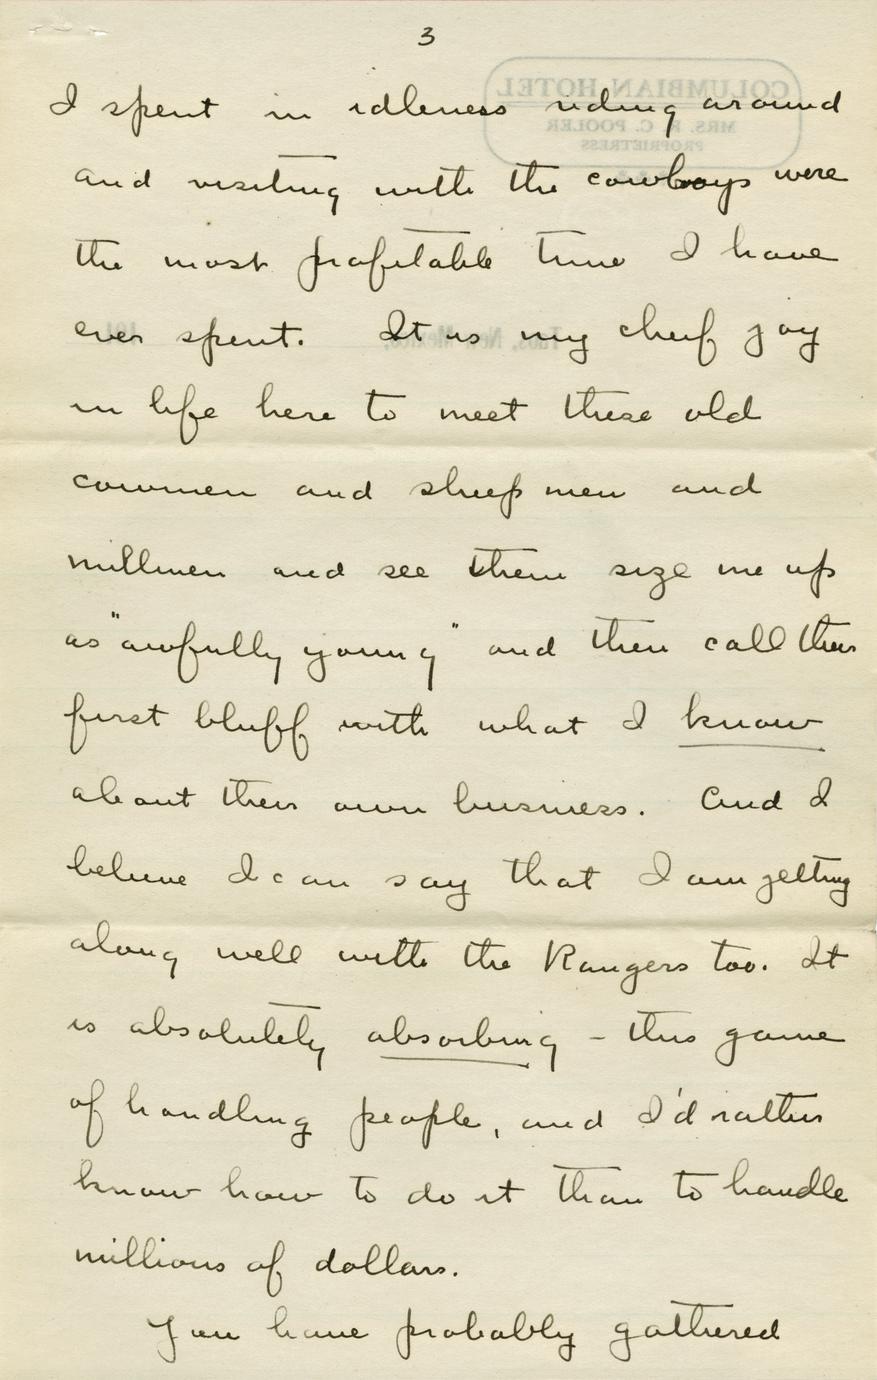 3
COLUMBIAN HOTEL
MRS. R. C. POOLER
PROPRIETRESS
Taos, New Mexico, 191
I spent in idleness riding around
and visiting with the cowboys were
the most profitable time I have
ever spent. It is my cheif joy
in life here to meet these old
cowmen and sheep men and
millmen and see them size me up
as "awfully young" and then call their
first bluff with what I know
about their own business. And I
believe I can say that I am getting
along well with the Rangers too. It
is absolutely absorbing - this game
of handling people, and I'd rather
know how to do it than to handle
millions of dollars.
You have probably gathered